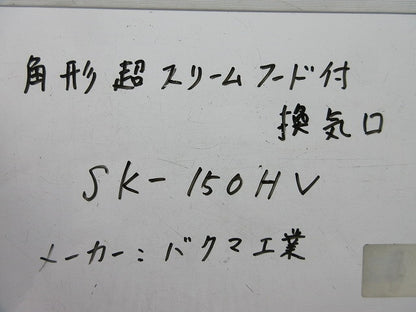 角形超スリームフード付
換気口
SK-150HV
メーカー:バクマ工業